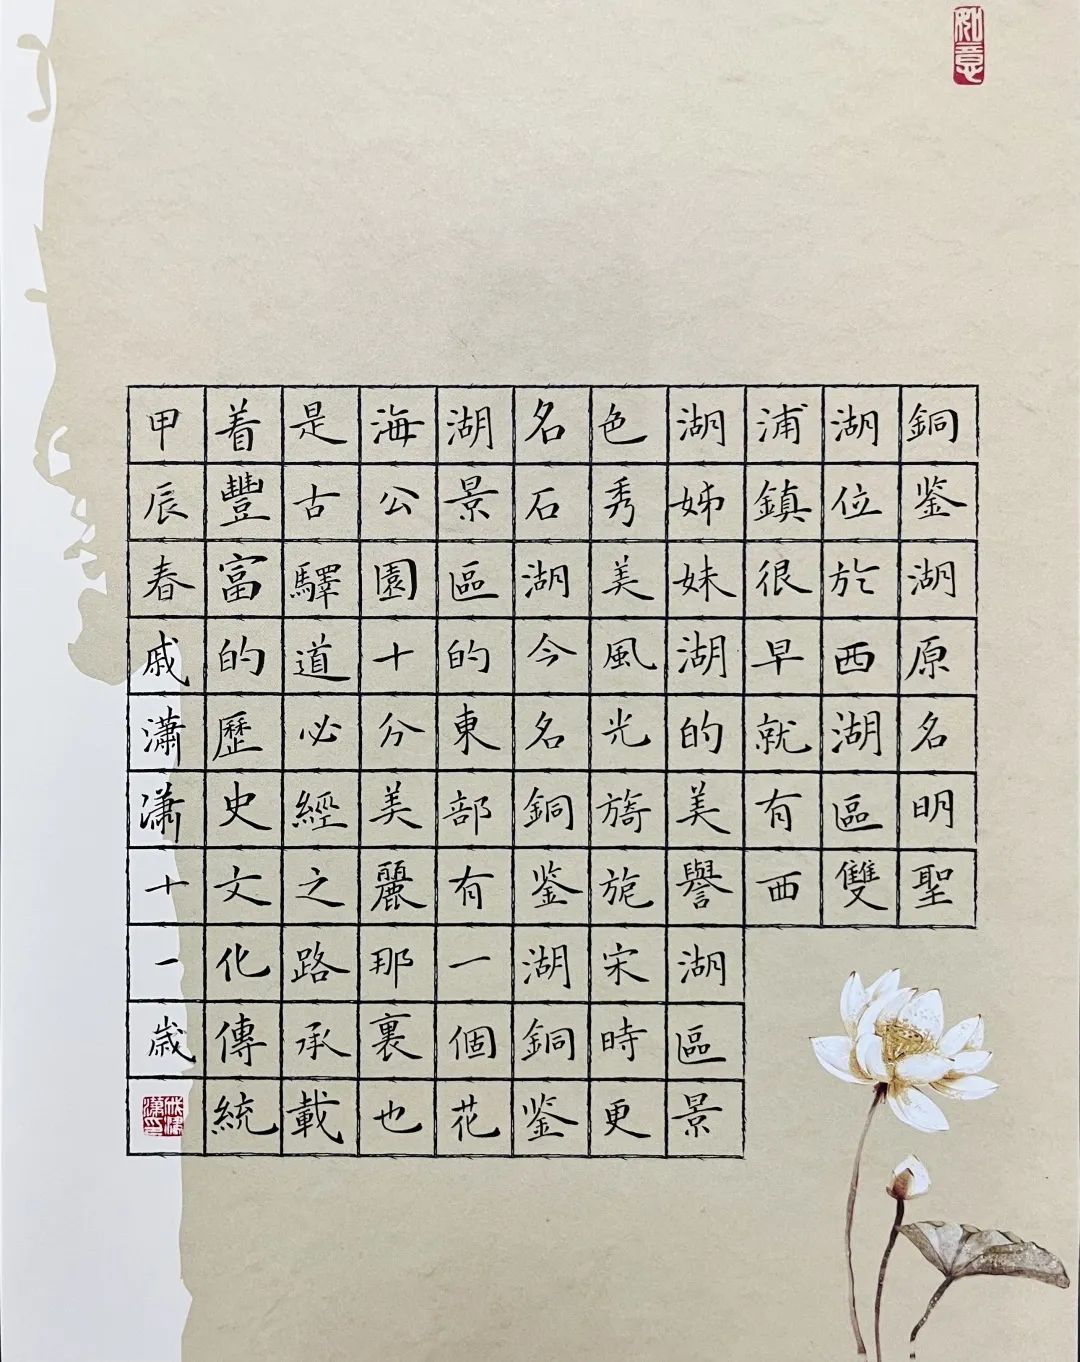 如意
銅鉴湖原名明聖
湖位於西湖區雙
浦鎮很早就有西
湖姊妹湖的美譽湖區景
色秀美風光旖旎宋時更
名石湖今名銅鉴湖銅鉴
湖景區的東部有一個花
海公園十分美麗那裏也
是古驛道必經之路承載
着豐富的歷史文化傳統
甲辰春戚瀟瀟十一歲